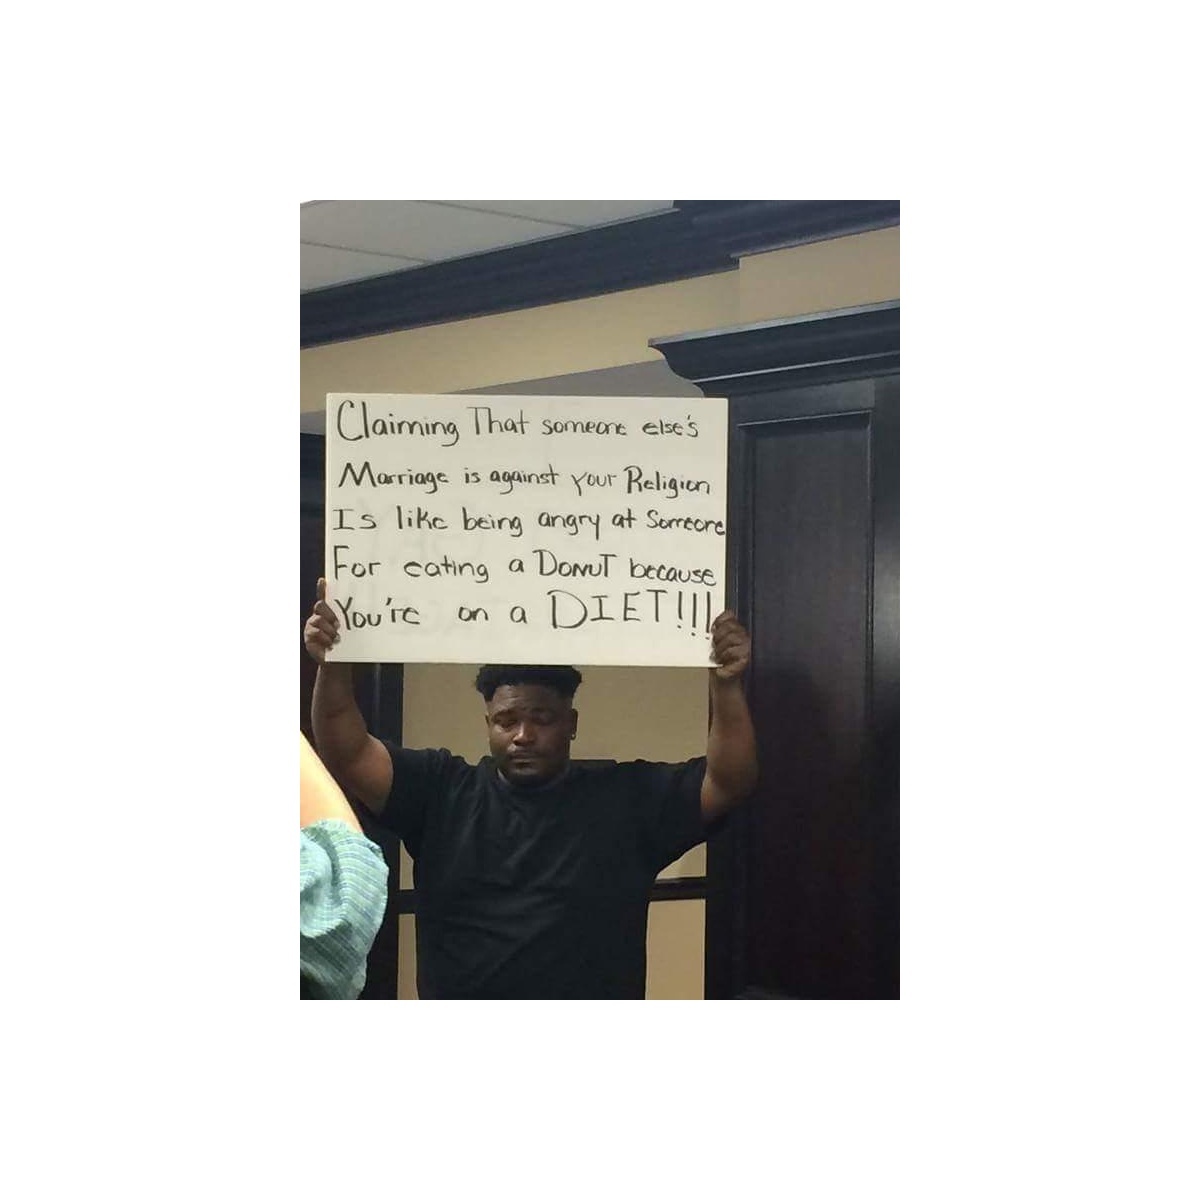 Claiming That someone else's
Marriage is against your Religion
Is like being angry at Someone
For eating a Donut because
You're on a DIET!!!